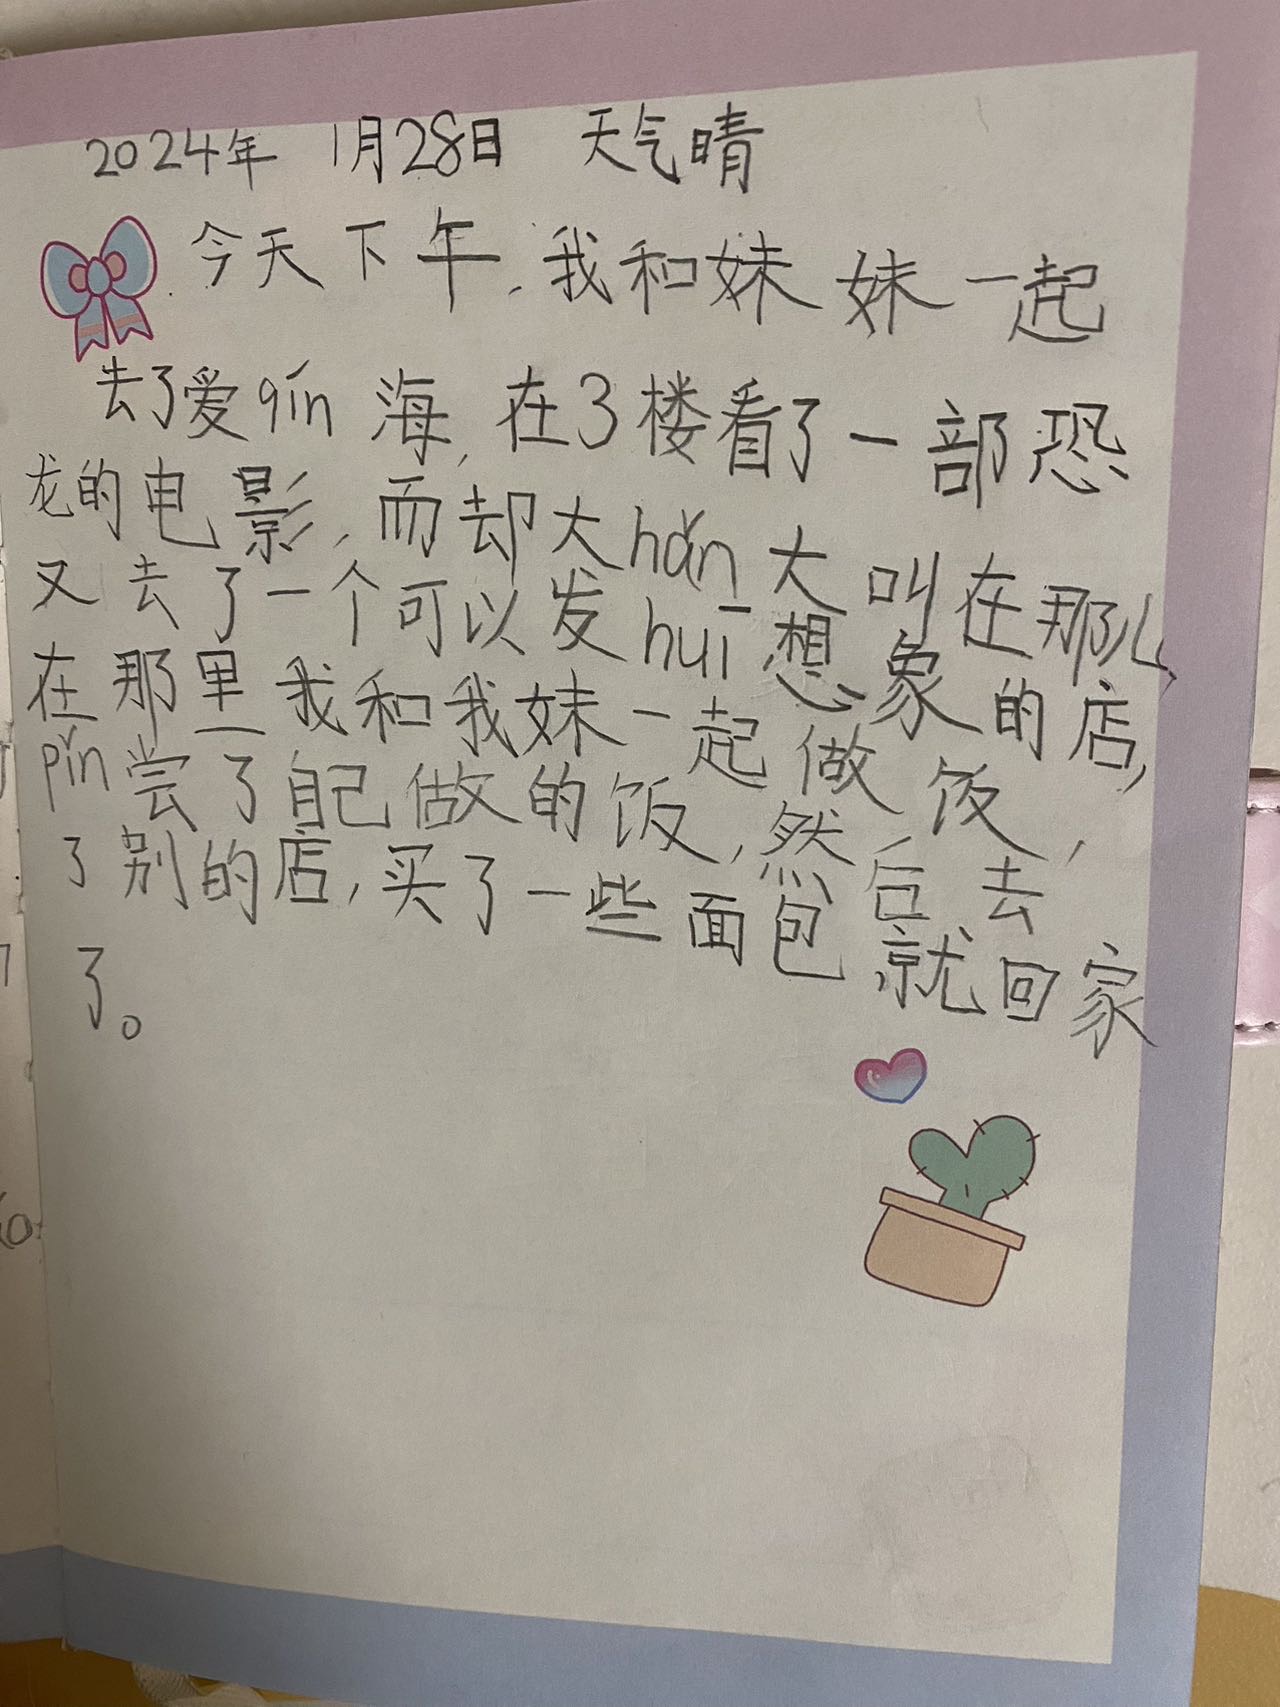 2024年 1月28日 天气晴
今天下午,我和妹妹一起
去了爱qín海,在3楼看了一部恐
龙的电影,而却大hǎn大叫在那儿,
又去了一个可以发huī想象的店,
在那里我和我妹一起做饭,
pǐn尝了自己做的饭,然后去
了别的店,买了一些面包就回家
了。